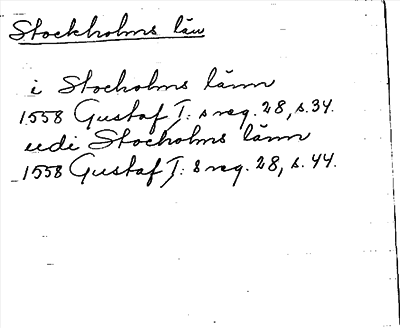 Stockholms län
i Stocholms länn
1558 Gustaf I: s reg. 28, s. 34.
udi Stocholms länn
1558 Gustaf I: s reg. 28, s. 44.